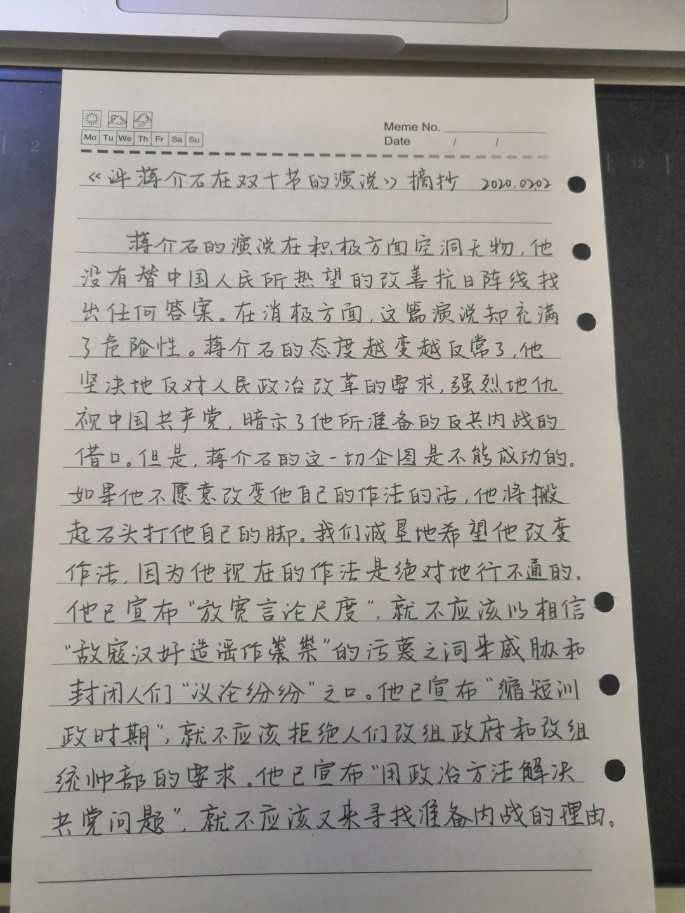 Meme No.
Mo Tu We Th Fr Sa Su
Date / /
《评蒋介石在双十节的演说》摘抄 2020.0202
蒋介石的演说在积极方面空洞无物,他
没有替中国人民所热望的改善抗日阵线找
出任何答案。在消极方面,这篇演说却充满
了危险性。蒋介石的态度越变越反常了,他
坚决地反对人民政治改革的要求,强烈地仇
视中国共产党,暗示了他所准备的反共内战的
借口。但是,蒋介石的这一切企图是不能成功的。
如果他不愿意改变他自己的作法的话,他将搬
起石头打他自己的脚。我们诚恳地希望他改变
作法,因为他现在的作法是绝对地行不通的。
他已宣布“放宽言论尺度”,就不应该以相信
“敌寇汉奸造谣作祟”的污蔑之词来威胁和
封闭人们“议论纷纷”之口。他已宣布“缩短训
政时期”,就不应该拒绝人们改组政府和改组
统帅部的要求。他已宣布“用政治方法解决
共党问题”,就不应该又来寻找准备内战的理由。